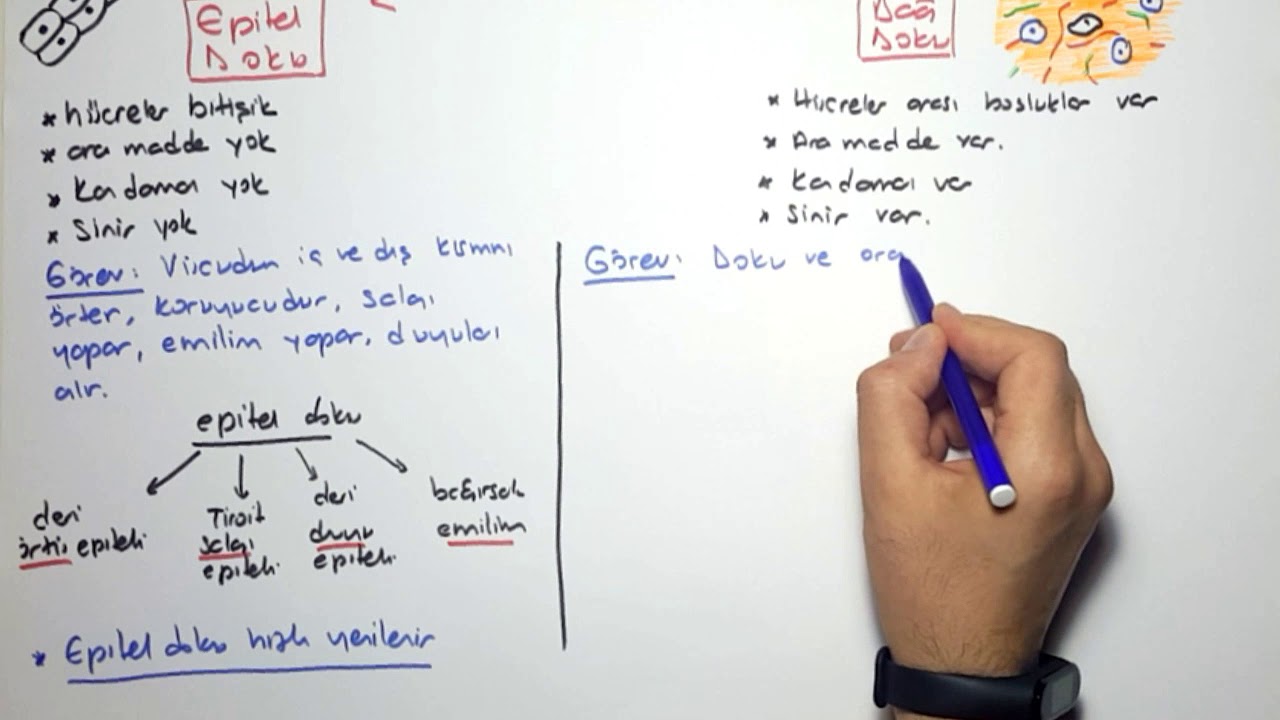 Epitel
Doku
* hücreler bitişik
* ara madde yok
* Kan damarı yok
* Sinir yok
Görev: Vücudun iç ve dış kısmını
örter, koruyucudur, salgı
yapar, emilim yapar, duyuları
alır.
epitel doku
deri
örtü epiteli
Tiroit
salgı
epiteli
deri
duyu
epiteli
bağırsak
emilim
* Epitel doku hızlı yenilenir
Bağ
Doku
* Hücreler arası boşluklar var
* Ara madde var.
* Kan damarı var
* Sinir var.
Görev: Doku ve orga